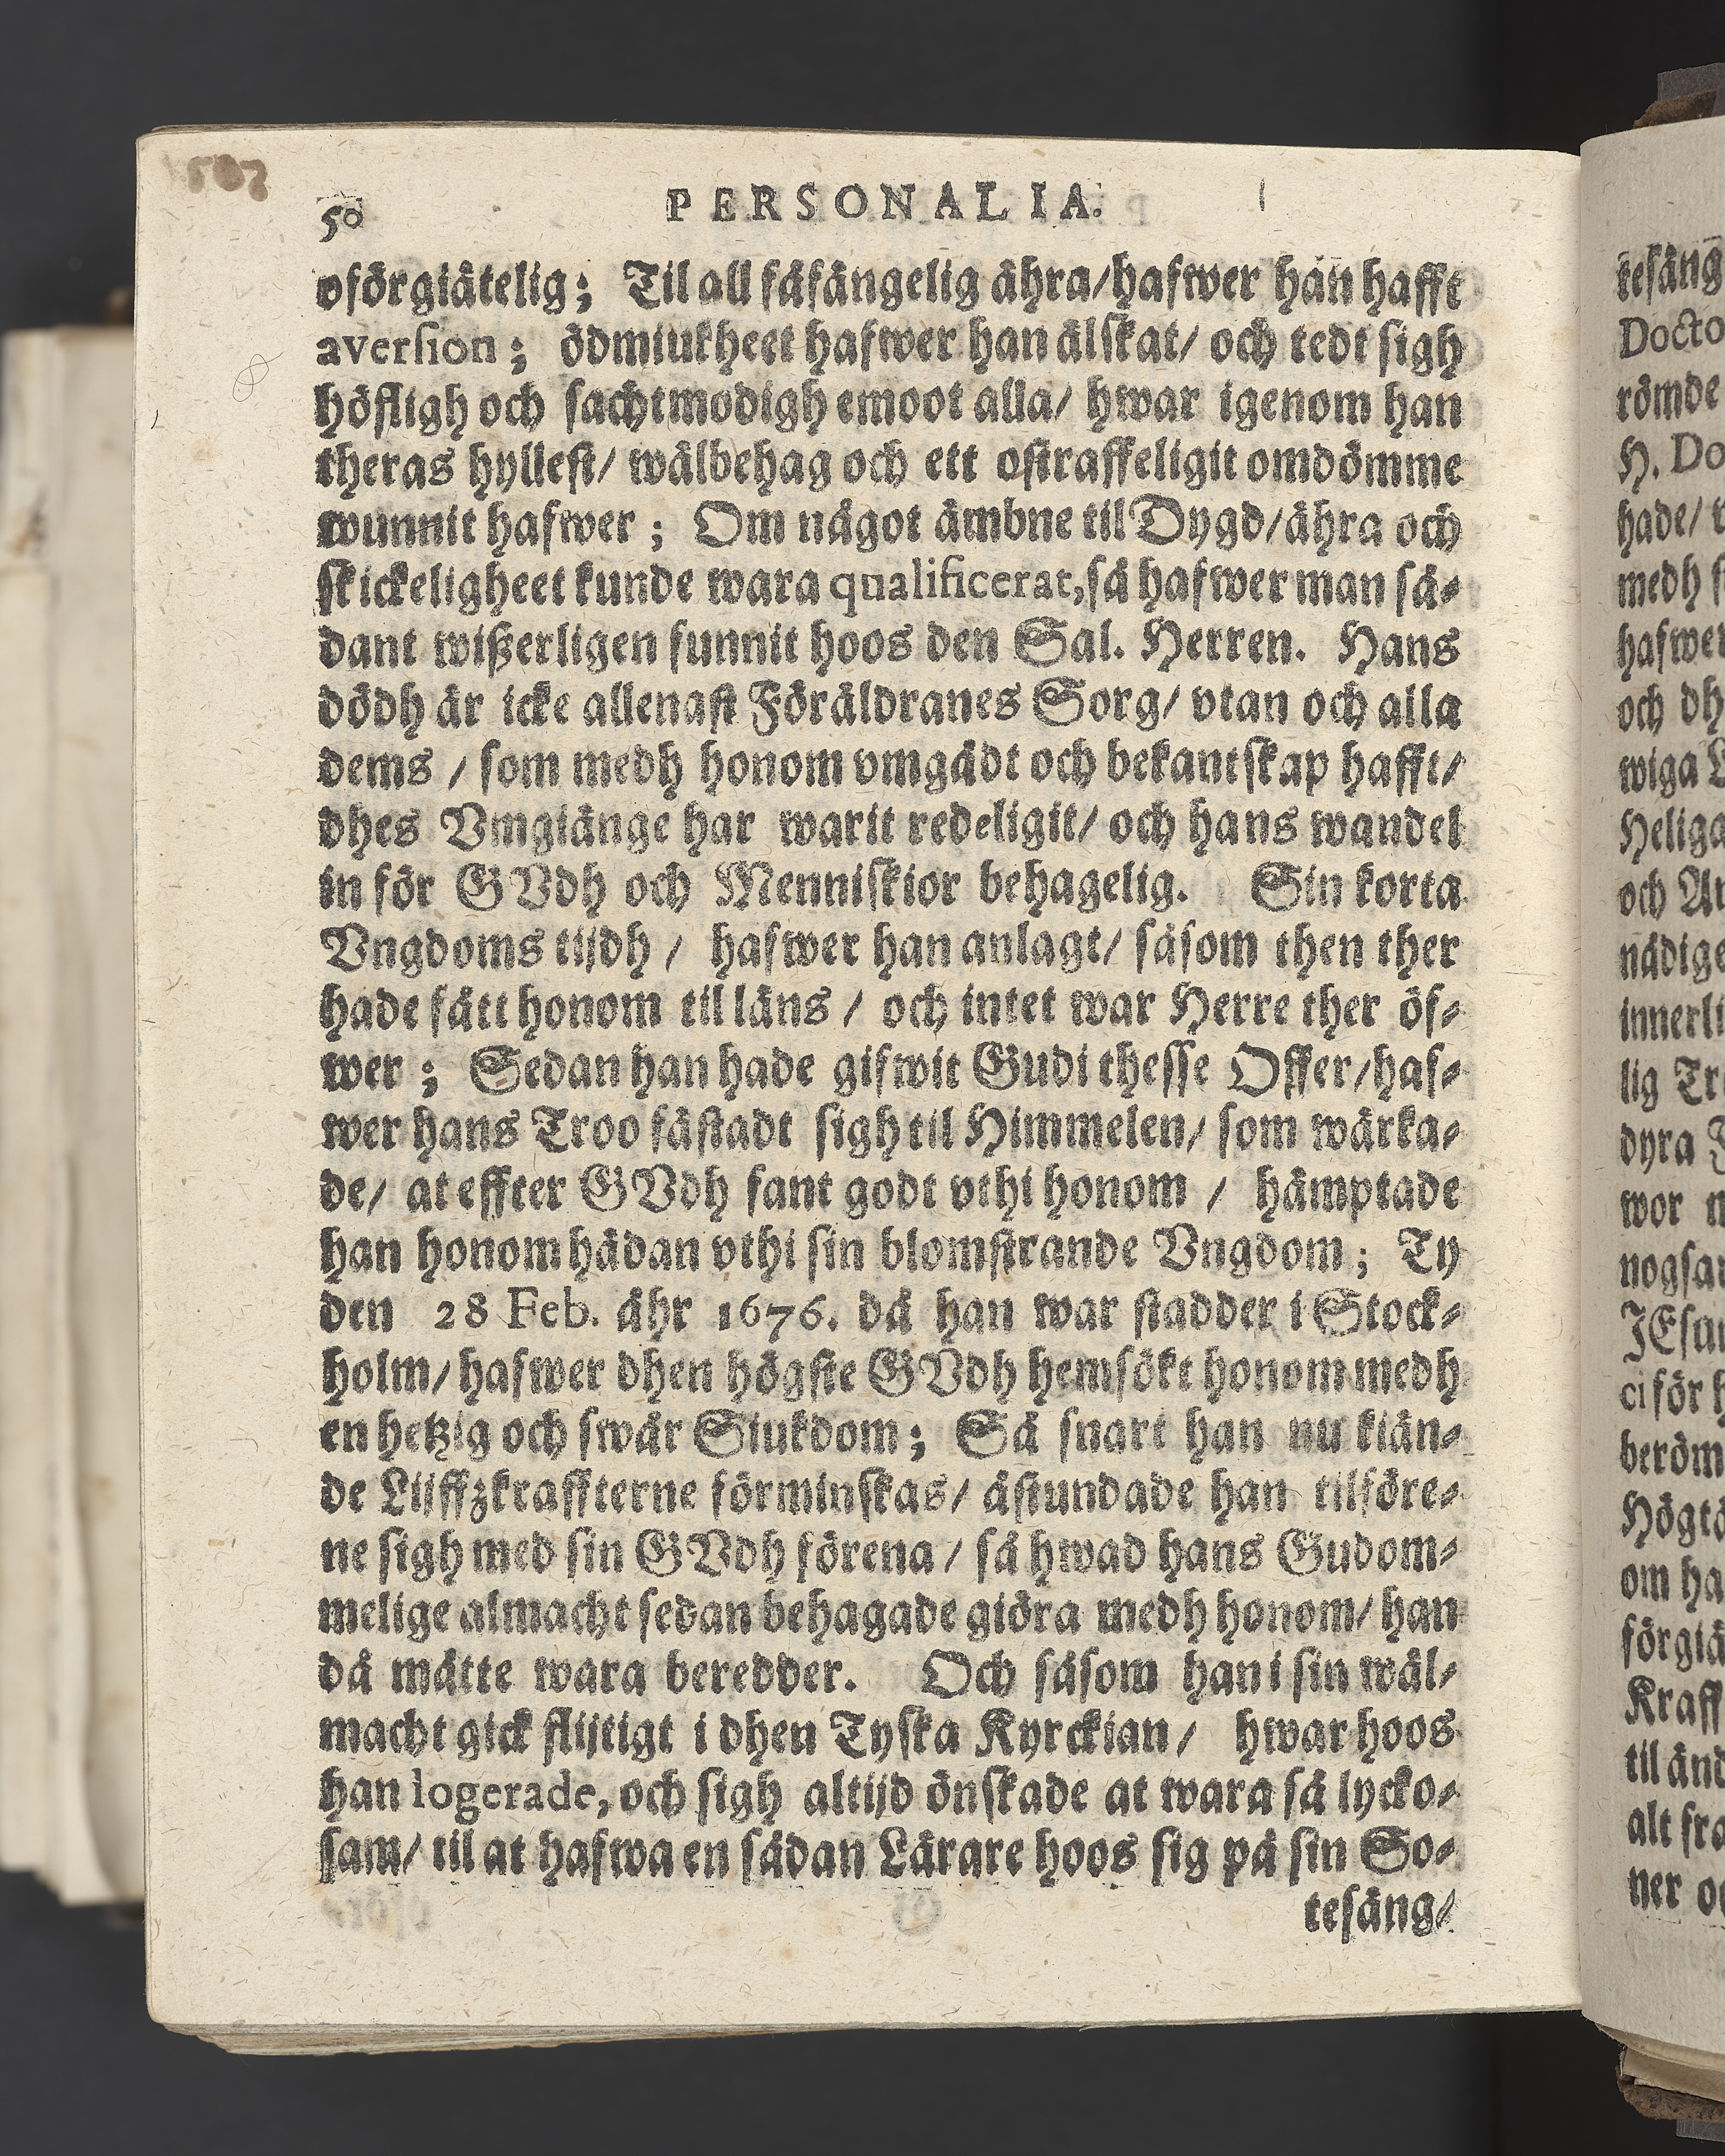 50 PERSONALIA.
oförgiätelig; Til all fåfängelig ähra/hafwer hañ hafft
aversion; ödmiukheet hafwer han älskat/ och tedt sigh
höfligh och sachtmodigh emoot alla/ hwar igenom han
theras hyllest/ wälbehag och ett ostraffeligit omdömme
wunnit hafwer; Om något ämbne til Dygd/ähra och
skickeligheet kunde wara qualificerat, så hafwer man så-
dant wißerligen funnit hoos den Sal. Herren. Hans
dödh är icke allenast Föräldranes Sorg/ vtan och alla
dems / som medh honom vmgådt och bekantskap hafft/
dhes Vmgiänge har warit redeligit/ och hans wandel
in för GVdh och Menniskior behagelig. Sin korta
Vngdoms tijdh / hafwer han anlagt/ såsom then ther
hade fått honom til låns / och intet war Herre ther öf-
wer; Sedan han hade gifwit Gudi thesse Offer/haf-
wer hans Troo fästadt sigh til Himmelen/ som wärka-
de/ at effter GVdh fant godt vthi honom / hämptade
han honom hädan vthi sin blomstrande Vngdom; Ty
den 28 Feb. åhr 1676. då han war stadder i Stock-
holm/ hafwer dhen högste GVdh hemsökt honom medh
en hetzig och swår Siukdom; Så snart han nu kiän-
de Lijffzkraffterne förminskas/ åstundade han tilföre-
ne sigh med sin GVdh förena / så hwad hans Gudom-
melige almacht sedan behagade giöra medh honom/ han
då måtte wara beredder. Och såsom han i sin wäl-
macht gick flijtigt i dhen Tyska Kyrckian / hwar hoos
han logerade, och sigh altijd önskade at wara så lycko-
sam/ til at hafwa en sådan Lärare hoos sig på sin So-
tesäng/
tesäng
Docto
römde
H. Do
hade/
medh
hafwer
och dh
wiga
Heliga
och
nådige
innerli
lig Tr
dyra
wor
nogsa
JEsu
ci för h
beröm
Högt
om ha
förgiä
Kraff
til änd
alt fra
ner